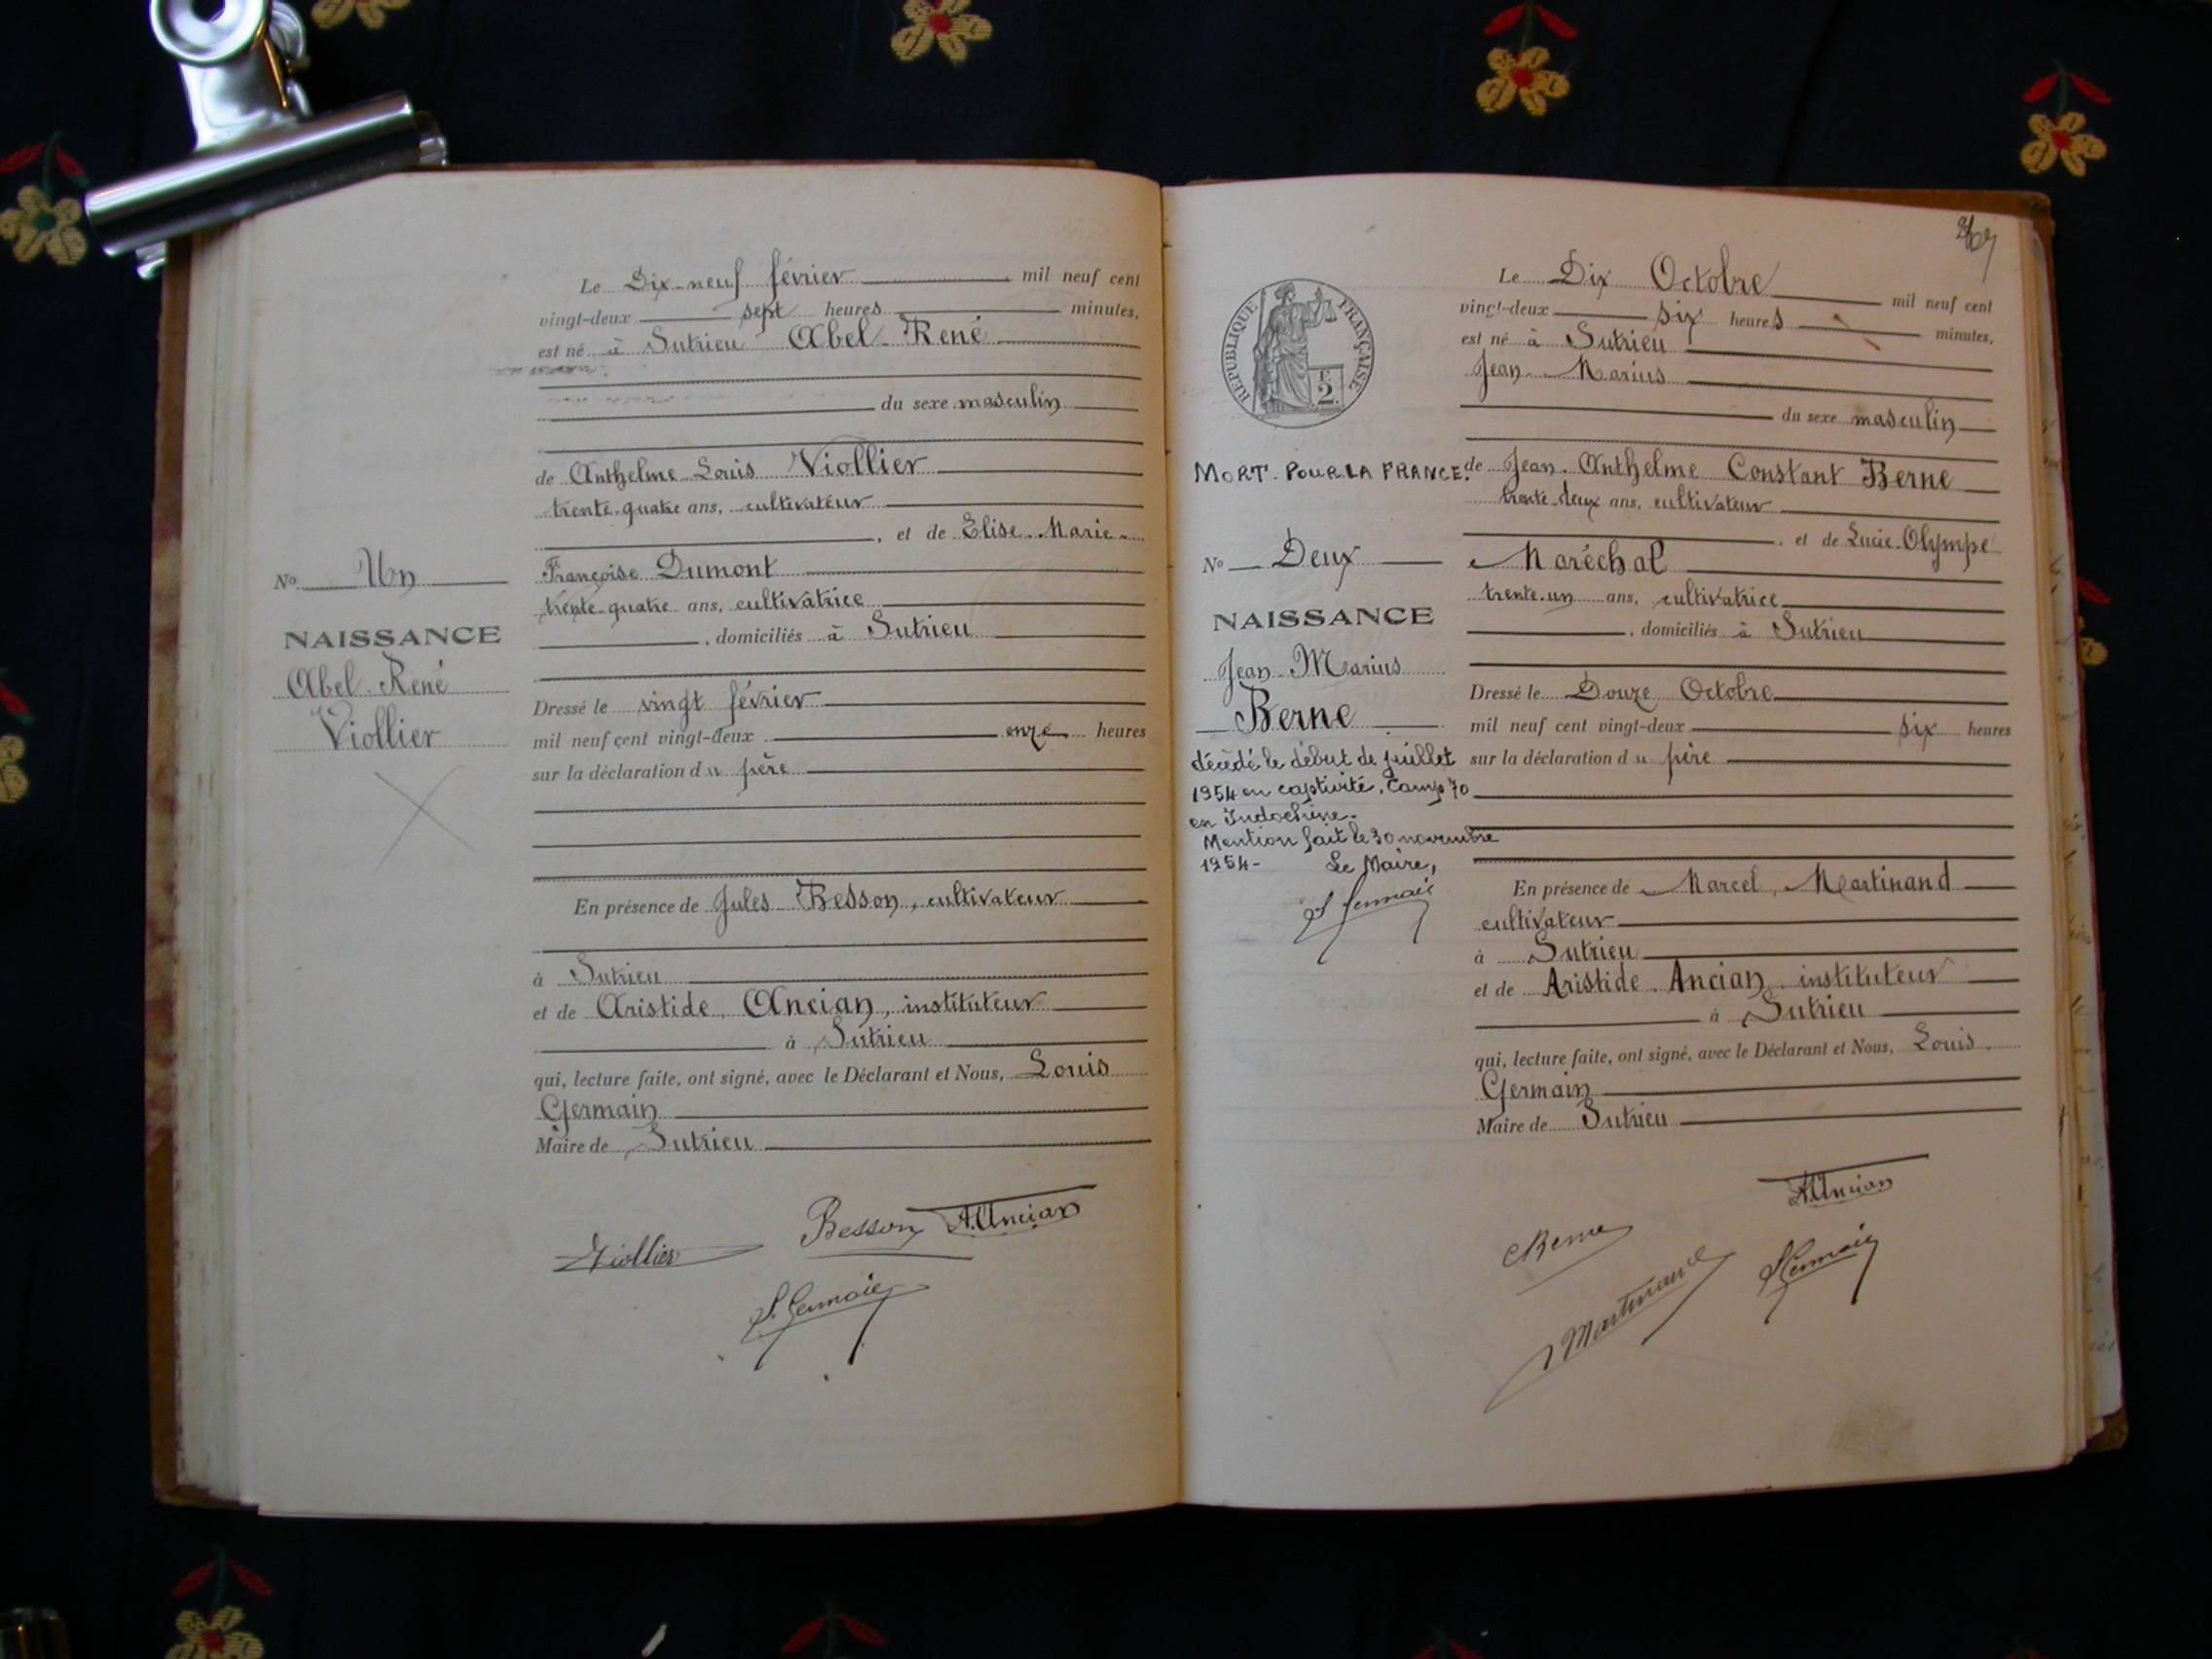 Le Dix-neuf février mil neuf cent
vingt-deux sept heures minutes,
est né à Sutrieu Abel René
du sexe masculin
de Anthelme Louis Viollier
trente-quatre ans, cultivateur
, et de Elise Marie
Françoise Dumont
trente-quatre ans, cultivatrice
, domiciliés à Sutrieu
Dressé le vingt février
mil neuf cent vingt-deux onze heures
sur la déclaration du père
En présence de Jules Besson, cultivateur
à Sutrieu
et de Aristide Ancian, instituteur
à Sutrieu
qui, lecture faite, ont signé, avec le Déclarant et Nous, Louis
Germain
Maire de Sutrieu
Viollier
Besson
A. Ancian
L. Germain
No Un
NAISSANCE
Abel René
Viollier
RÉPUBLIQUE FRANÇAISE
2F
Le Dix Octobre mil neuf cent
vingt-deux six heures minutes,
est né à Sutrieu
Jean Marius
du sexe masculin
de Jean Anthelme Constant Berne
trente-deux ans, cultivateur
, et de Lucie Olympe
Maréchal
trente-un ans, cultivatrice
, domiciliés à Sutrieu
Dressé le Douze Octobre
mil neuf cent vingt-deux six heures
sur la déclaration du père
En présence de Marcel Martinand
cultivateur
à Sutrieu
et de Aristide Ancian instituteur
à Sutrieu
qui, lecture faite, ont signé, avec le Déclarant et Nous, Louis
Germain
Maire de Sutrieu
A. Ancian
Berne
Martinand
L. Germain
MORT POUR LA FRANCE.
No Deux
NAISSANCE
Jean Marius
Berne
décédé le début de juillet
1954 en captivité, Camp 70
en Indochine.
Mention fait le 30 novembre
1954 - Le Maire,